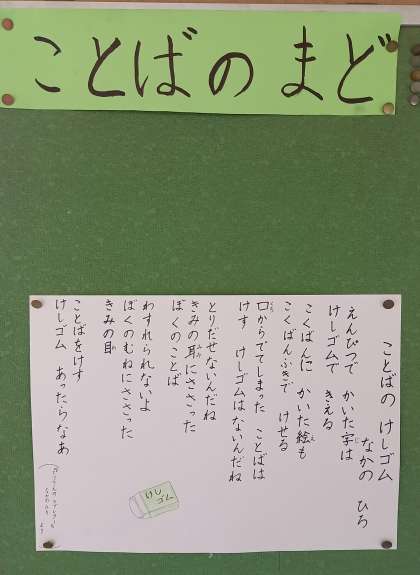 ことばの まど
ことばの けしゴム
なかの ひろ
えんぴつで かいた字は
けしゴムで きえる
こくばんに かいた絵も
こくばんふきで けせる
口からでてしまった ことばは
けす けしゴムはないんだね
とりだせないんだね
きみの耳にささった
ぼくのことば
わすれられないよ
ぼくのむねにささった
きみの目
ことばをけす
けしゴム あったらなあ
けし
ゴム
より